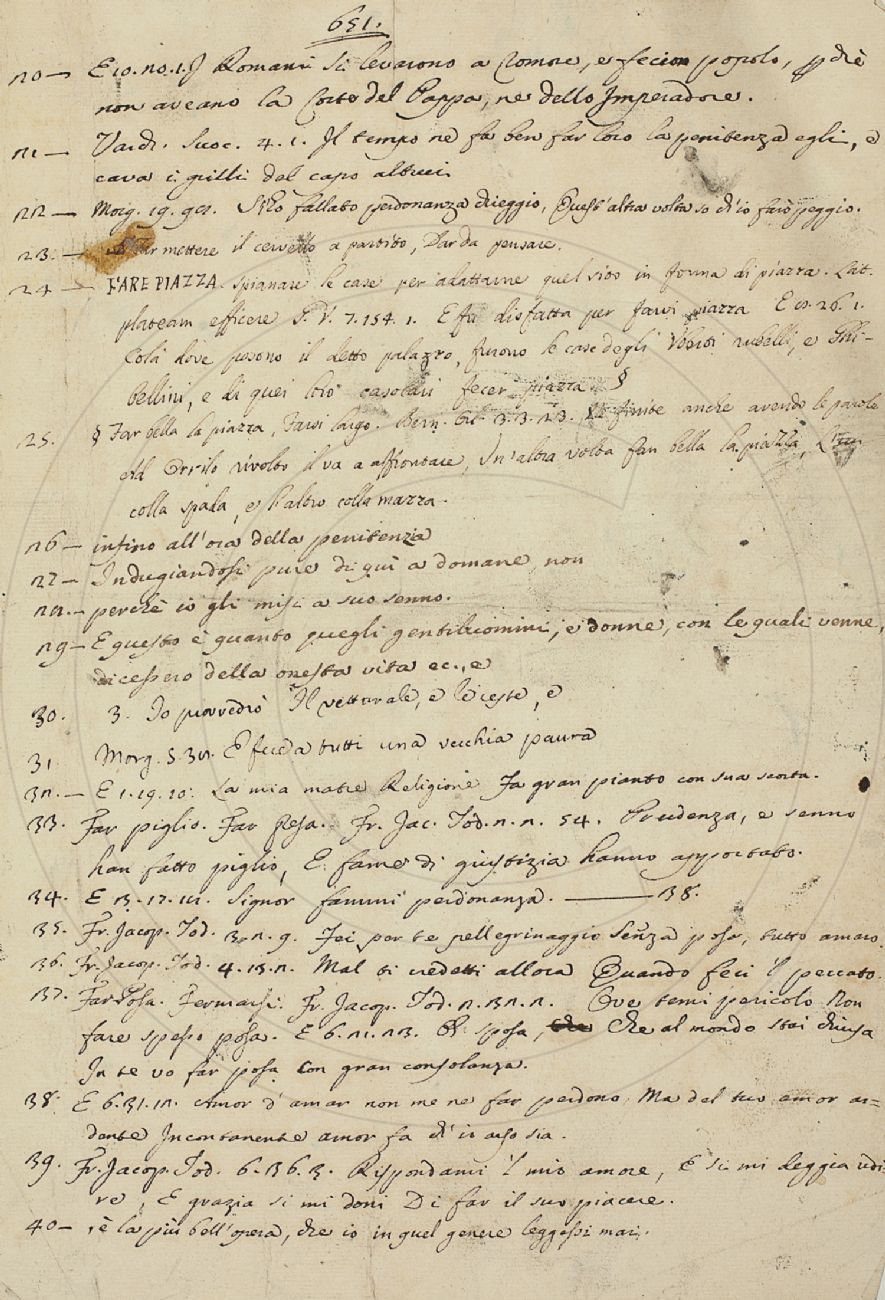 651.
20 — E 10. 20. 1. I Romani si levarono a romore, e fecion popolo, p chè
non aveano la Corte del Pappa, ne dello Imperadore.
21 — Varch. Suoc. 4. 1. Il tempo ne fa ben far loro la penitenza egli, e
cava i grilli del capo altrui
22 — Morg. 19. S' ho fallato perdonanza chieggio, Quest' altra volta so ch' io farò peggio.
23. — Far mettere il cervello a partito, Dar da pensare.
24 — FARE PIAZZA. spianare le case per adattarne quel sito in forma di piazza. Lat.
plateam efficere G. V. 7. 154. 1. E fu disfatta per farvi piazza E 8. 26. 1.
Colà dove posono il detto palazzo, furono le case degli Uberti rubelli, e Ghi-
bellini, e di quei loro casolari fecer piazza §
25. § Far bella la piazza, Farvi largo. Bern. Orl. 3. 3. 23. finite anche avendo le parole
Ad Orrilo rivolto il va a affrontare, Un' altra volta fan bella la piazza, L'un
colla spada, e l'altro colla mazza.
26 — infino all' ora della penitenzia
27 — Indugiandosi pure di quì a domane, non
28. — perchè io gli misi a suo senno.
29 — E questo è quanto quegli gentiluomini, e donne, con le quali venne,
dicessero della onesta vita ec., e
30. 3. Io provvedrò Il vetturale, e le ceste, e
31 Morg. 5. 38. E fece a tutti una vecchia paura
32. — E 1. 19. 10. La mia matre Religione Fa gran pianto con sua scorta.
33. Far piglio. Far presa. Fr. Jac. Tod. 2. 2. 54. Prudenza, e senno
han fatto piglio, E fame di giustizia hanno apportato.
34. E 3. 17. 18. Signor fammi perdonanza. ——— 38.
35. Fr. Jacop. Tod. 9. Fei per te pellegrinaggio Senza posa, tutto amaro.
36. Fr. Jacop. Tod. 4. 13. 2. Mal ti credetti allora Quando feci 'l peccato.
37. Far Posa. Fermarsi. Fr. Jacop. Tod. 2. 32. 2. Ove temi pericolo Non
fare spesso posa. E 6. 21. 23. O sposa, che al mondo stai chiusa
In te vo far posa Con gran consolanza.
38. E 6. 31. 12. Amor d' amar non me ne far perdono, Ma del tuo amor ar-
dente Incontanente amor fa ch' io arso sia.
39. Fr. Jacop. Tod. 6. 36. 3. Rispondami 'l mio amore, E si mi deggia udi
re, E grazia si mi doni Di far il suo piacere.
40 — , è la più bell' opera, che io in quel genere leggessi mai.